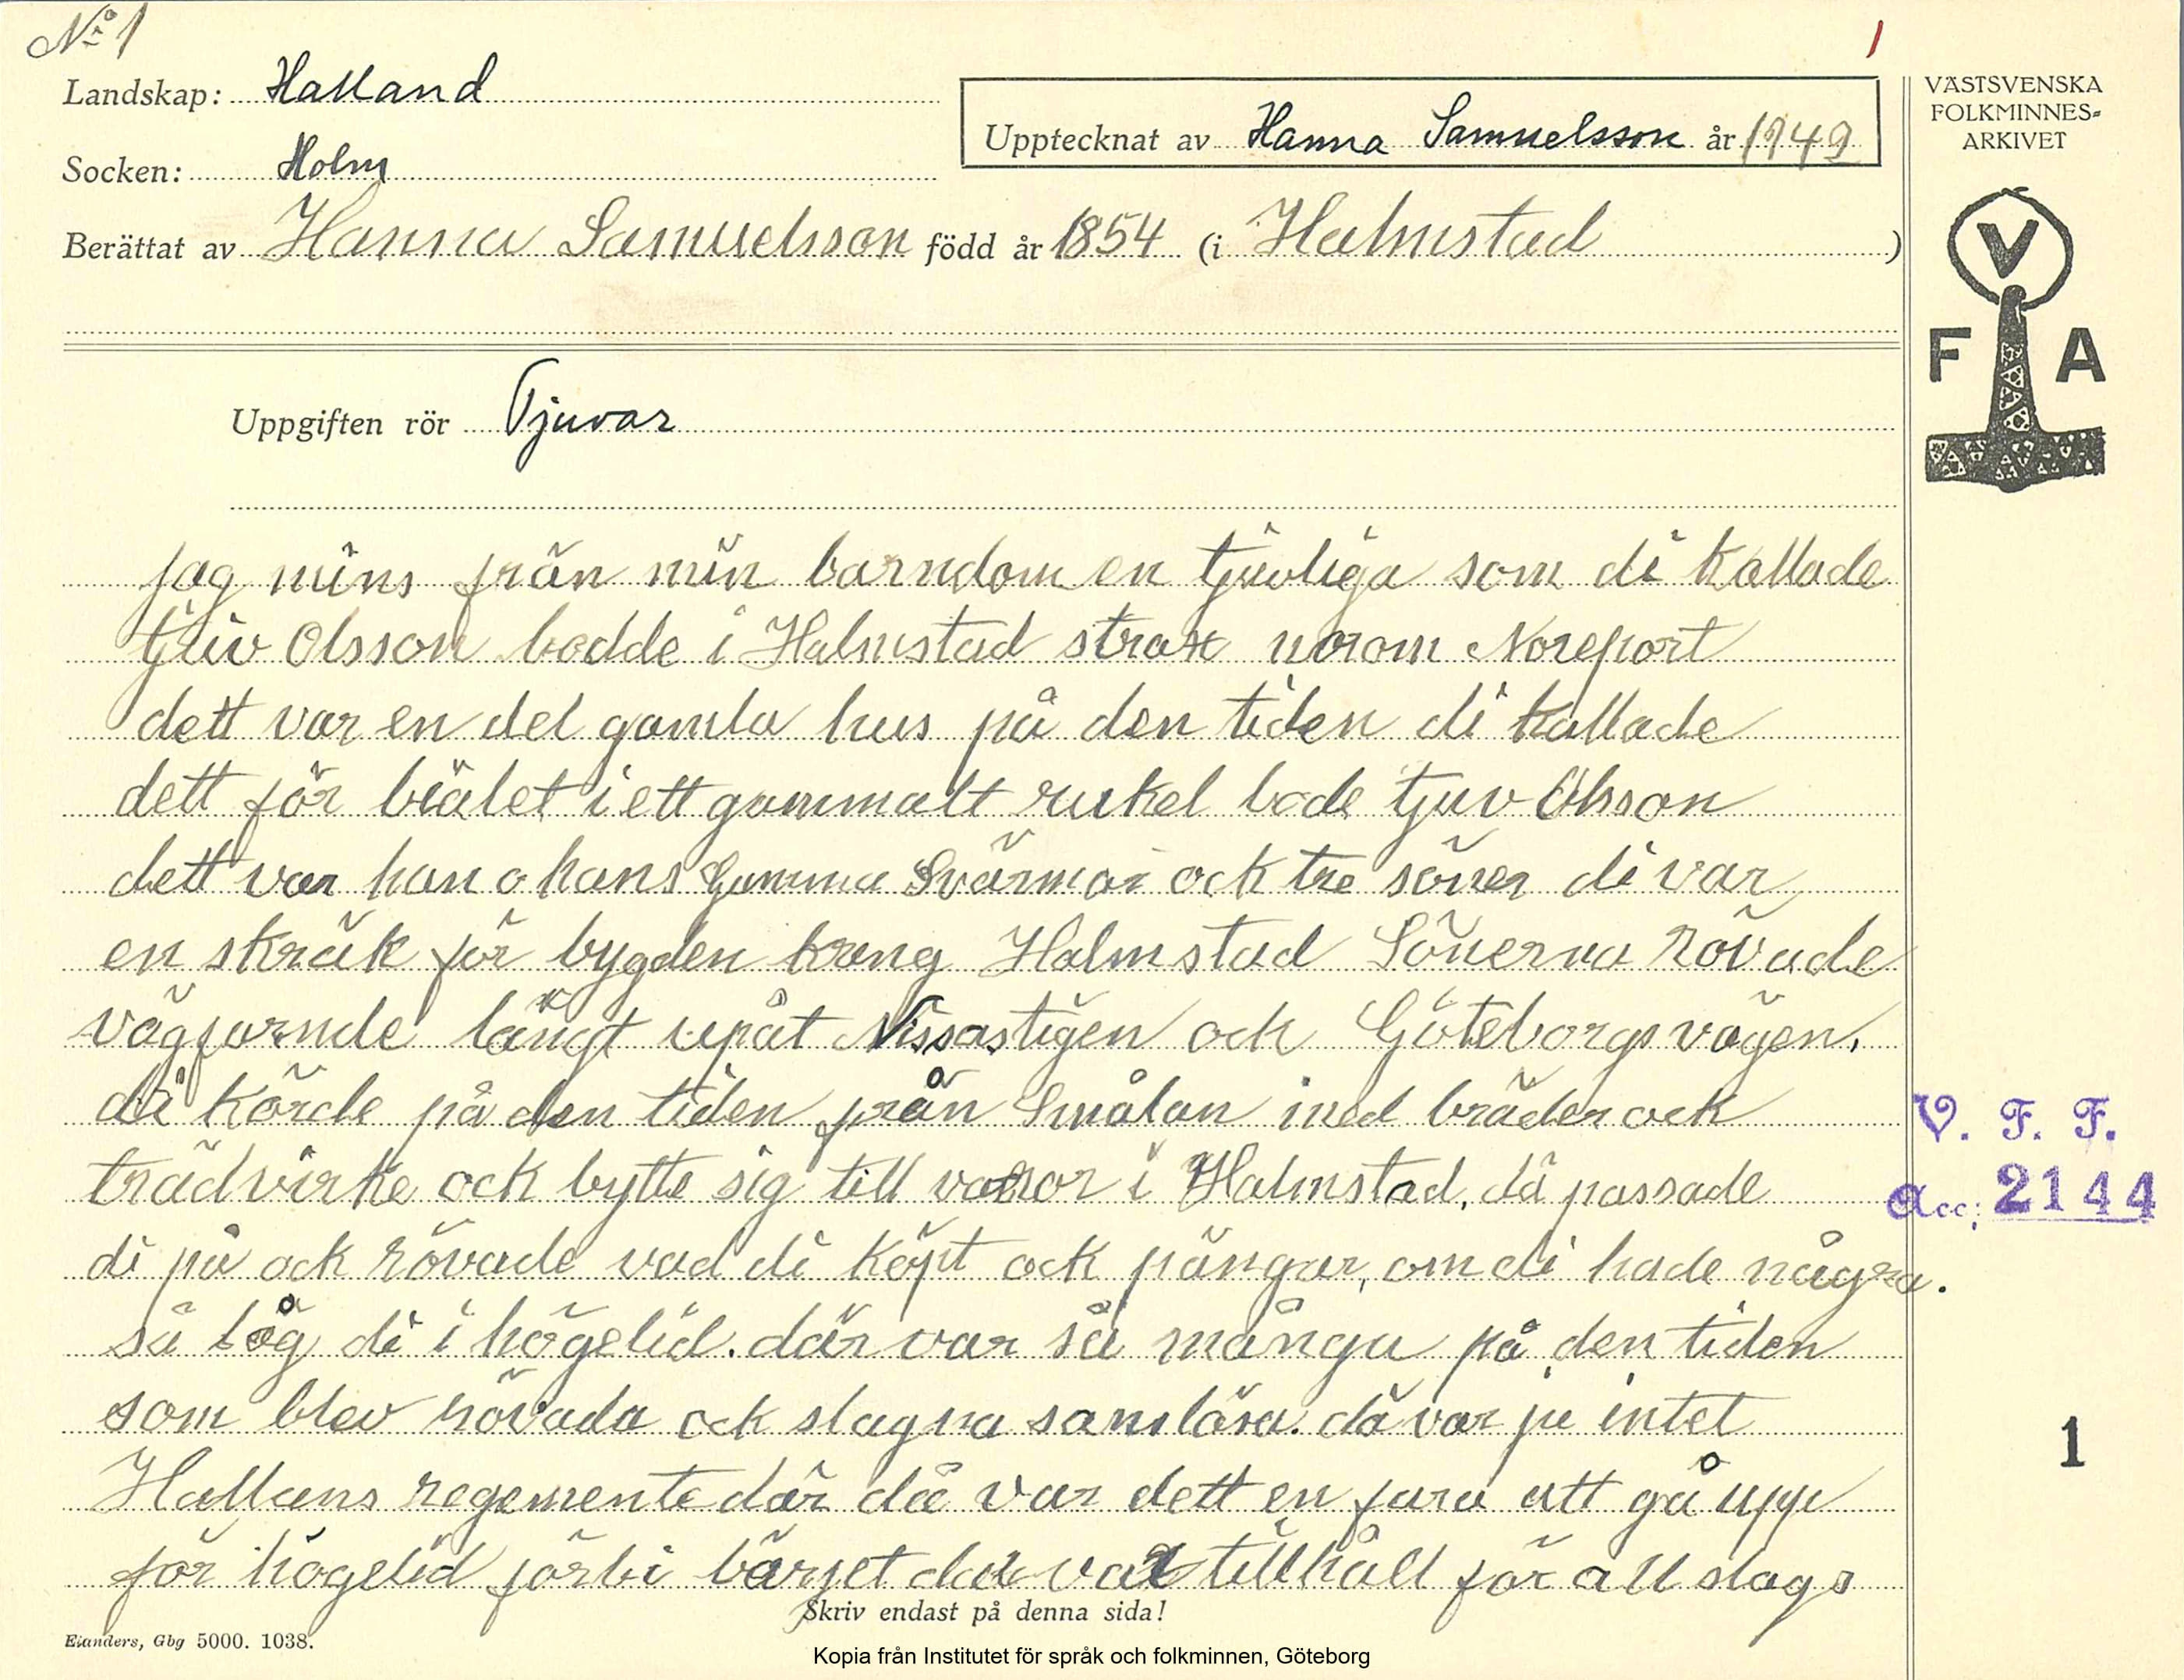 No 1
1
Landskap: Halland
Upptecknat av Hanna Samuelsson år 1949
VÄSTSVENSKA
FOLKMINNES-
ARKIVET
Socken: Holm
Berättat av Hanna Samuelsson född år 1854 (i Halmstad )
V
F A
Uppgiften rör Tjuvar
jag mins från min barndom en tjuvliga som di kallade
tjuv Olsson bodde i Halmstad strax norom Noreport
dett var en del gamla hus på den tiden di kallade
dett för i ett gammalt rukel bode tjuv Olsson
dett var han o hans gumma Svärmor ock tre söner di var
en skräk för bygden kring Halmstad Sönerna rövade
vägfarnde långt upåt Nissastigen och Göteborgsvägen.
di körde på den tiden från Smålan med bräder ock
trädvirke ock bytte sig till varor i Halmstad, då passade
di på ock rövade vad di köpt ock pängar, om di hade några.
så låg di i högelid. där var så många på den tiden
som blev rövada ock slagna sanslösa. då var ju intet
Hallans regemente där då var dett en fara att gå upp
för högelid förbi bärjet där var tillhåll för all slags
V. F. F.
Acc; 2144
1
Skriv endast på denna sida!
Elanders, Gbg 5000. 1038.
Kopia från Institutet för språk och folkminnen, Göteborg